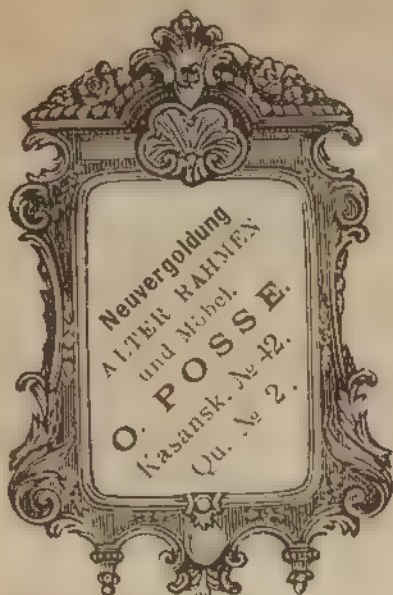 Neuvergoldung
ALTER RAHMEN
und Möbel.
O. POSSE.
Kasansk. № 42.
Qu. № 2.